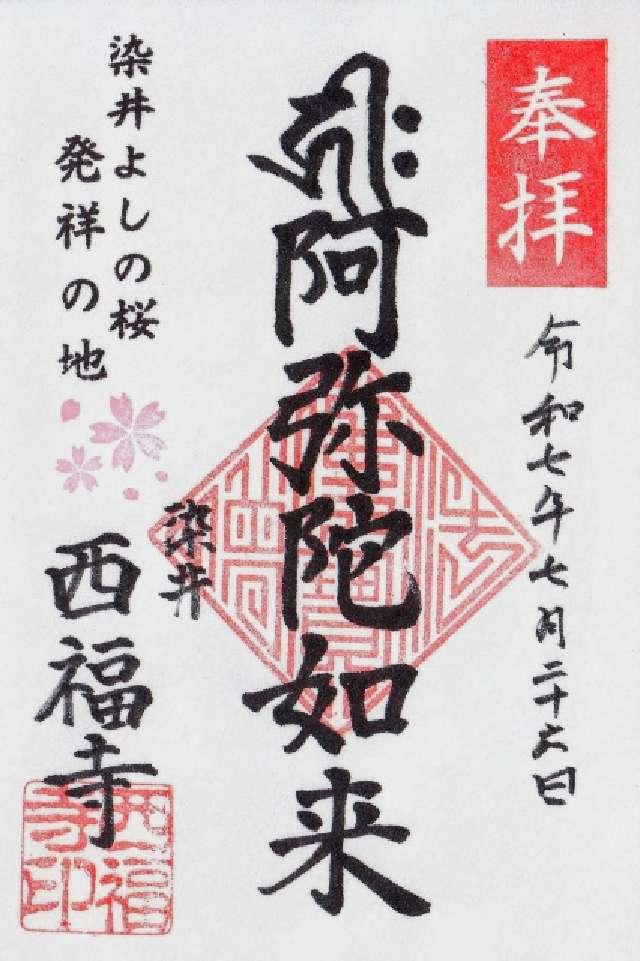 奉拝
令和七年七月二十六日
阿弥陀如来
染井よしの桜
発祥の地
染井
西福寺
西福寺印